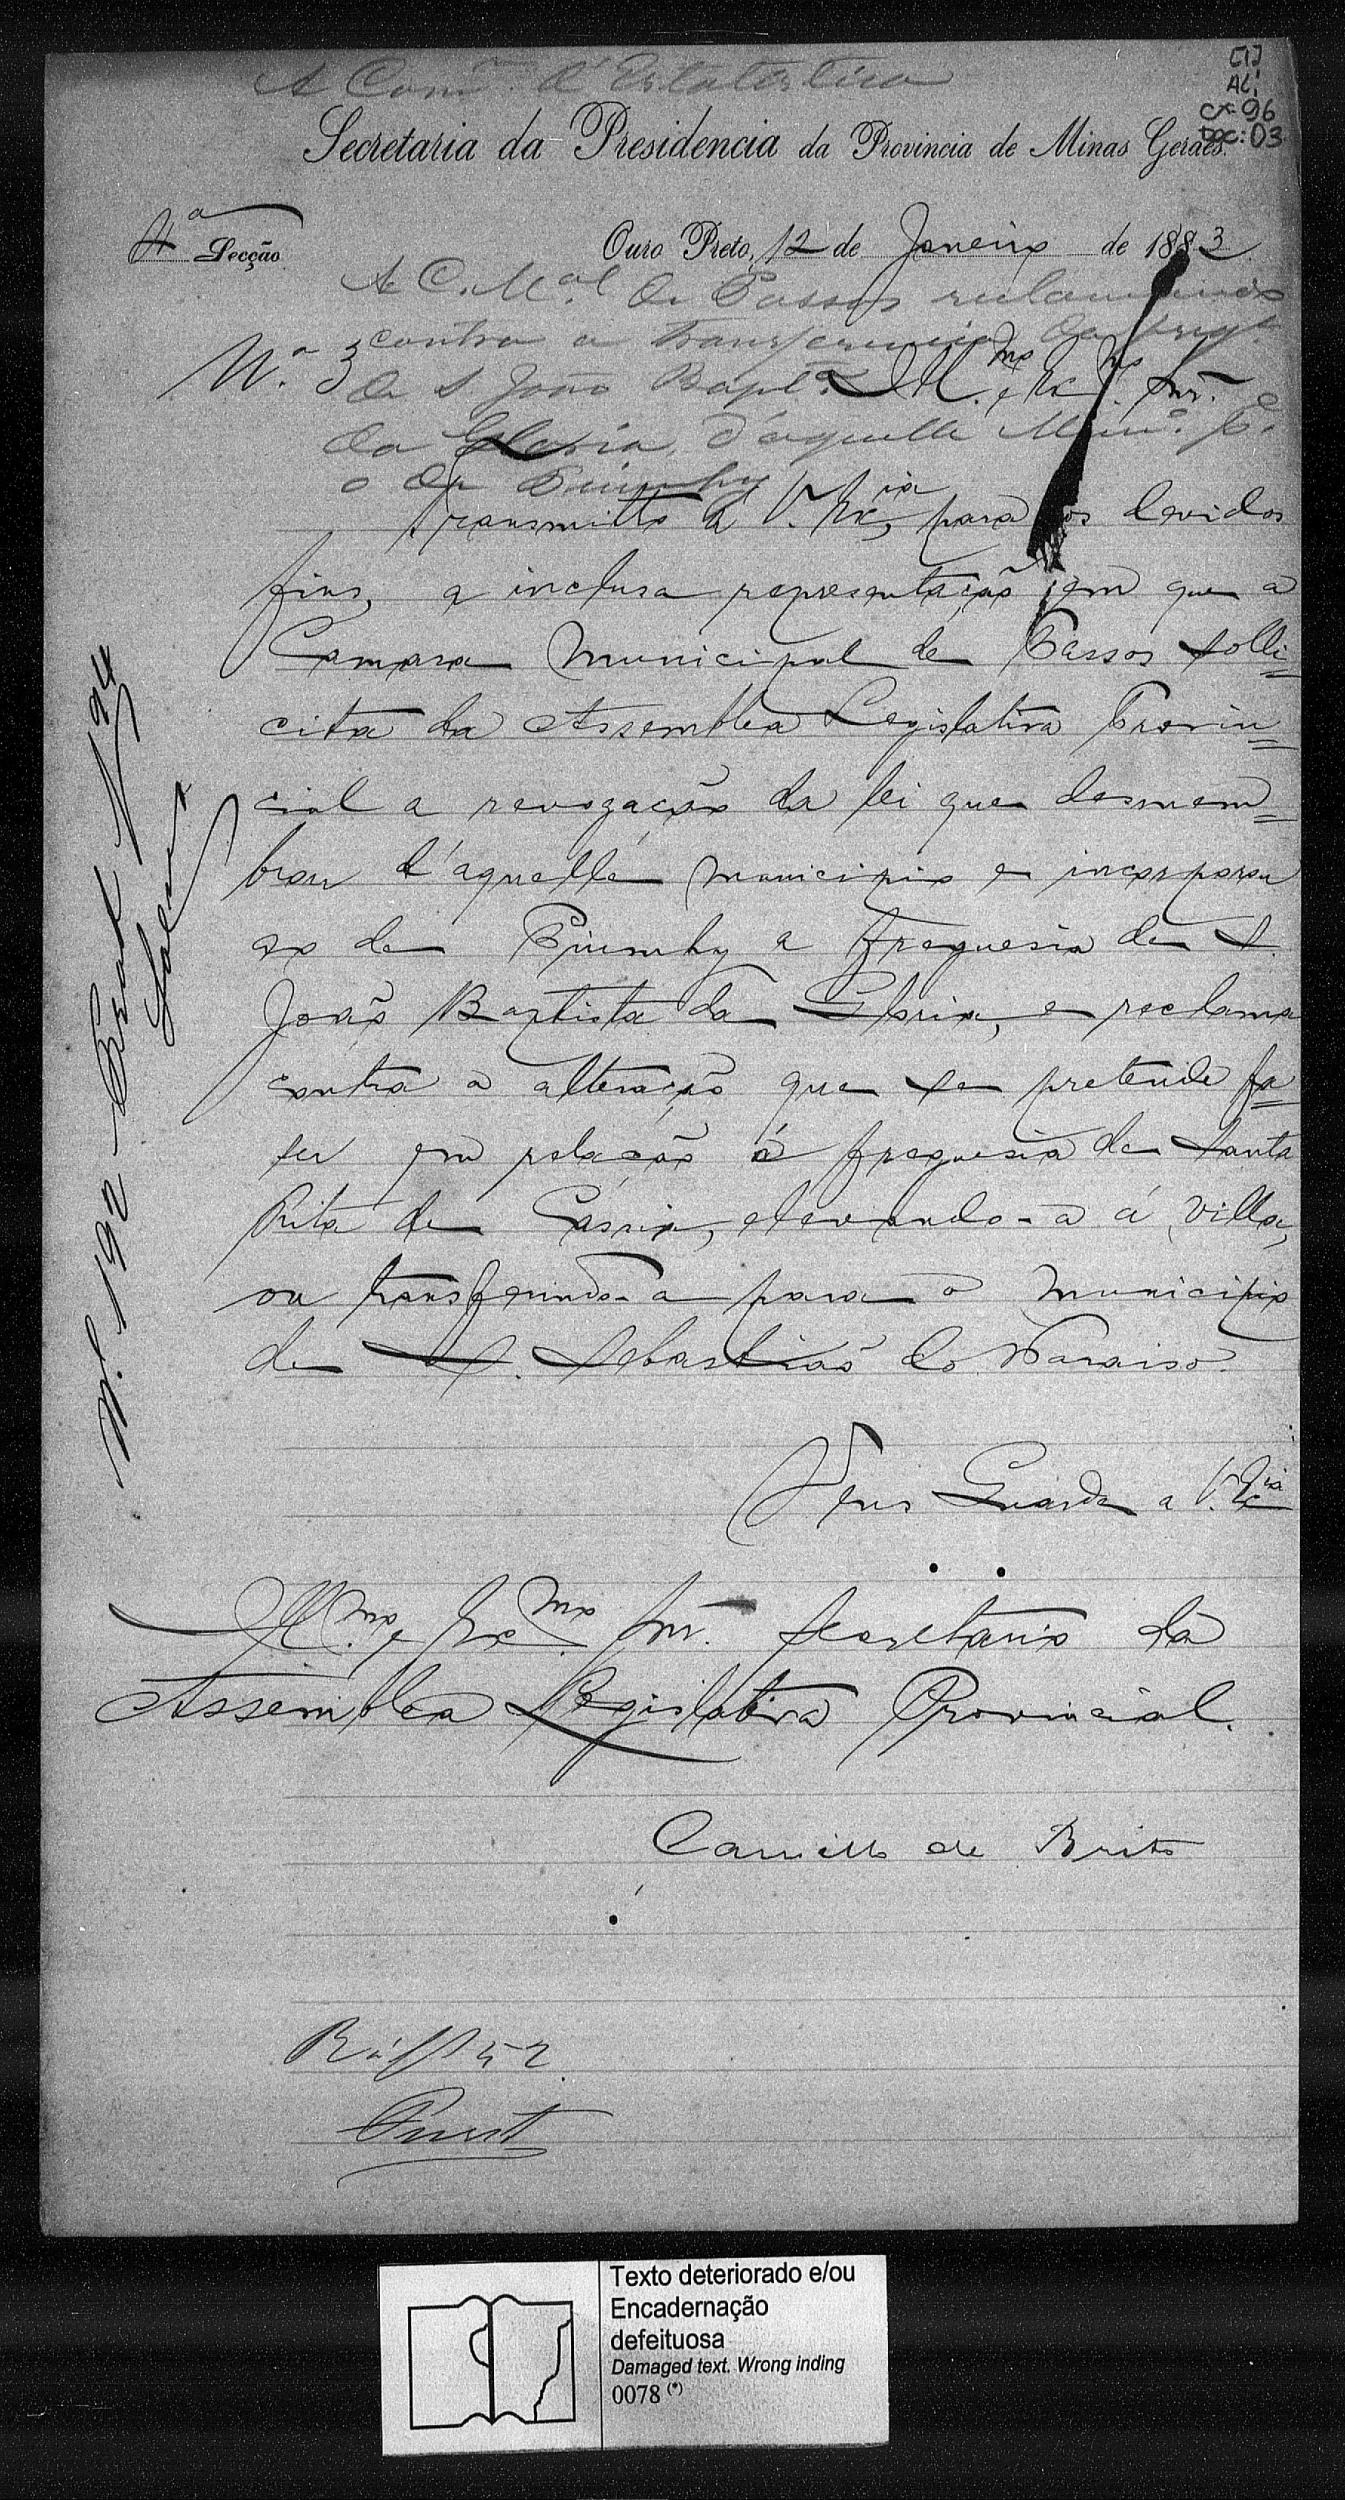 A Com.m d'Estatistica
[1]
AL!
cx-96
Doc: 03
Secretaria da Presidencia da Provincia de Minas Geraes.
4ª Secção
Ouro Preto, 12 de Janeiro de 1883
A C. M.al de Passos reclamando
contra a transferencia da freg.ª
N.º 3
de S João Bapt.ª
Ill.mo e Ex.mo Snr.
da Gloria, d'aquelle Mun.º p.ª
o de Piumhy
Transmitto á V. Ex.cia, para os devidos
fins, a inclusa representação em que a
Camara Municipal de Passos solli=
cita da Assemblea Legislativa Provin=
cial a revogação da lei que desmem=
brou d'aquelle municipio e incorporou
ao de Piumhy a freguesia de S.
João Baptista da Gloria, e reclama
contra a alteração que se pretende fa=
ser em relação á freguesia de Santa
Rita de Cassia, elevando-a á villa,
ou transferindo-a para o municipio
de S. Sebastião do Paraiso.
Deus Guarde a V. Ex.cia
Ill.mo e Ex.mo Snr. Secretario da
Assemblea Legislativa Provincial.
Camillo de Brito
N.º 192
Texto deteriorado e/ou
Encadernação
defeituosa
Damaged text. Wrong inding
0078 (*)